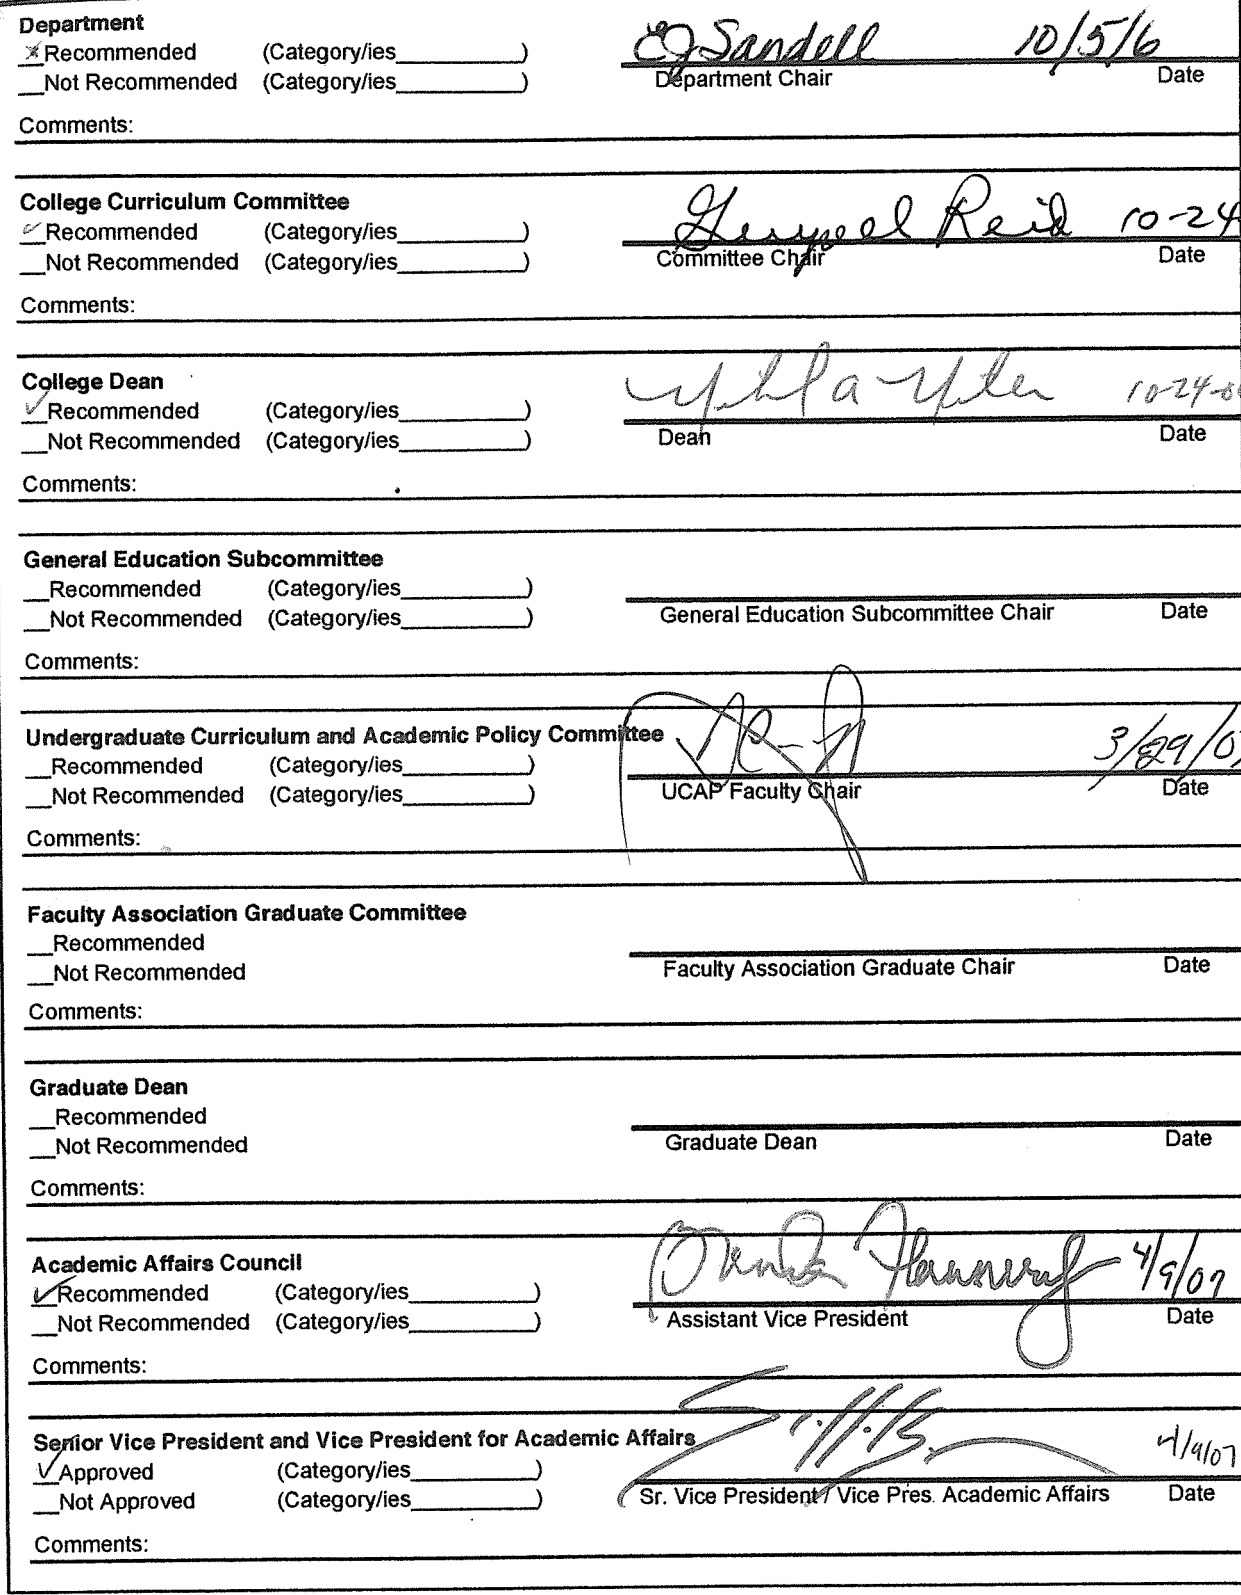 Department
×Recommended (Category/ies__________) EJ Sandell 10/5/6
__Not Recommended (Category/ies__________) Department Chair Date
Comments:
College Curriculum Committee
✓Recommended (Category/ies__________) Reid 10-24
__Not Recommended (Category/ies__________) Committee Chair Date
Comments:
College Dean
✓Recommended (Category/ies__________) 10-24-0
__Not Recommended (Category/ies__________) Dean Date
Comments:
General Education Subcommittee
__Recommended (Category/ies__________)
__Not Recommended (Category/ies__________) General Education Subcommittee Chair Date
Comments:
Undergraduate Curriculum and Academic Policy Committee 3/29/07
__Recommended (Category/ies__________)
__Not Recommended (Category/ies__________) UCAP Faculty Chair Date
Comments:
Faculty Association Graduate Committee
__Recommended
__Not Recommended Faculty Association Graduate Chair Date
Comments:
Graduate Dean
__Recommended
__Not Recommended Graduate Dean Date
Comments:
Academic Affairs Council
✓Recommended (Category/ies__________) 4/9/07
__Not Recommended (Category/ies__________) Assistant Vice President Date
Comments:
Senior Vice President and Vice President for Academic Affairs
✓Approved (Category/ies__________) 4/9/07
__Not Approved (Category/ies__________) Sr. Vice President / Vice Pres. Academic Affairs Date
Comments: